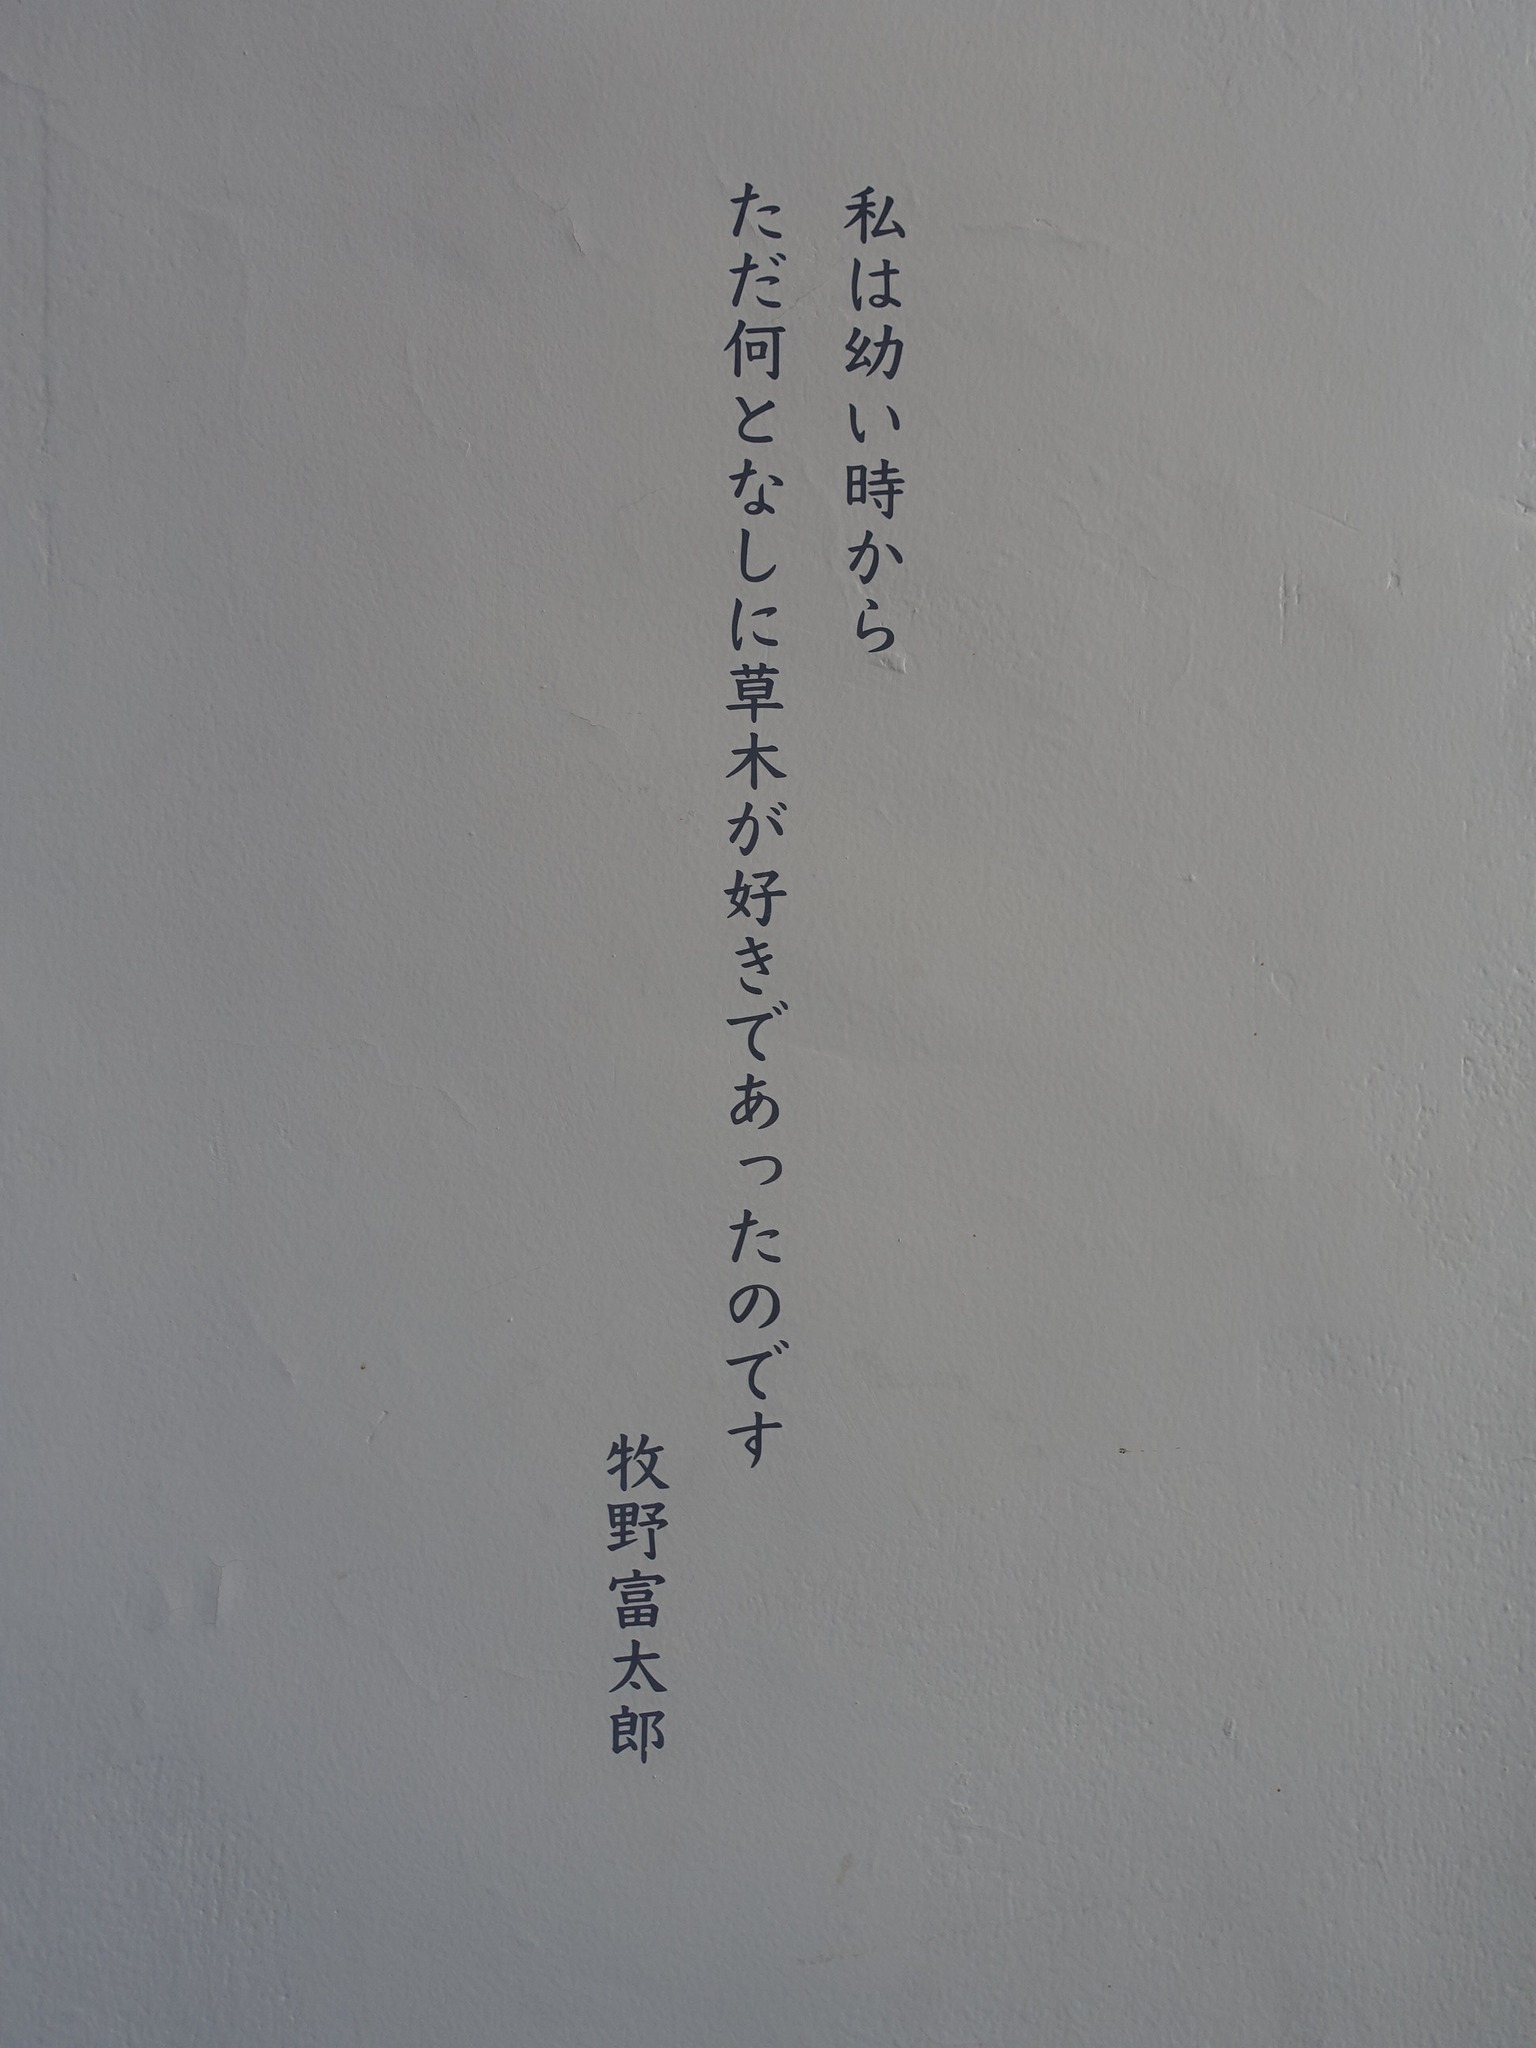 私は幼い時から
ただ何となしに草木が好きであったのです
牧野富太郎